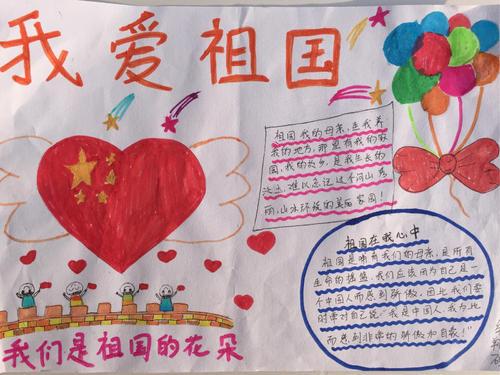 我爱祖国
祖国我的母亲，生我养
我的地方，那里有我们的家
园，我的故乡，是我生长的
沃土，难以忘记这个河山秀
丽，山水环绕的美丽家园！
祖国在我心中
祖国是哺育我们的母亲，是所有
生命的摇篮，我们应该因为自己是一
个中国人而感到骄傲，因此我们要
时常对自己说"我是中国人，我为此
而感到非常的骄傲和自豪！"
我们是祖国的花朵